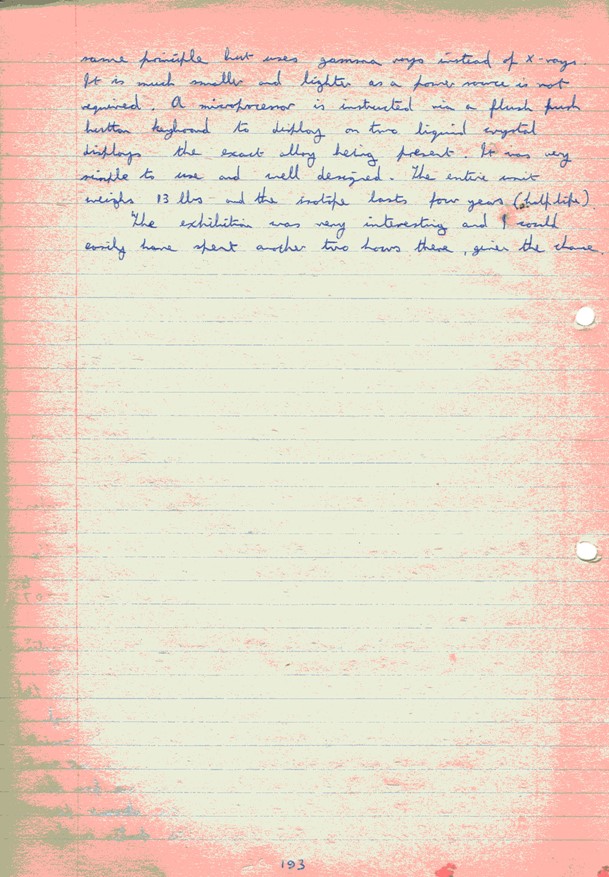 same principle but uses gamma rays instead of X-rays.
It is much smaller and lighter as a power source is not
required. A microprocessor is instructed via a flush push
button keyboard to display on two liquid crystal
displays the exact alloy being present. It was very
simple to use and well designed. The entire unit
weighs 13 lbs and the isotope lasts four years (half life).
The exhibition was very interesting and I could
easily have spent another two hours there, given the chance.
193